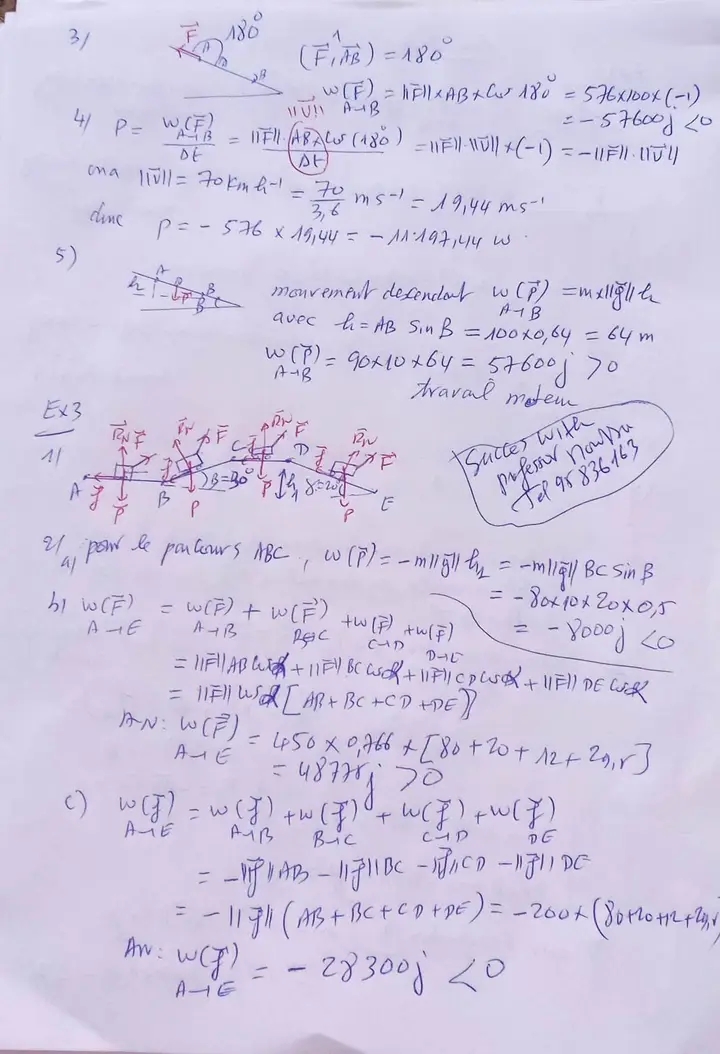 3/ F 180° A B
(F, AB) = 180°
W(F) A→B = ||F|| × AB × Cos 180° = 576×100×(-1)
= - 57600j < 0
4/ P = W(F) A→B / Δt = ||F||. AB × Cos (180°) / Δt = ||F||.||V|| × (-1) = - ||F||. ||V||
||V||
ona ||V|| = 70 Km h⁻¹ = 70/3,6 ms⁻¹ = 19,44 ms⁻¹
donc P = - 576 × 19,44 = - 11.197,44 w.
5)
h A B P B C
mouvement descendant W(P) A→B = m×||g|| h
avec h = AB Sin B = 100×0,64 = 64 m
W(P) A→B = 90×10×64 = 57600j > 0
travail moteur
Ex3
1/ A B C D E RN F f P RN F P RN F f P RN F f P B=30° h γ=20°
Succes with
professor
Tel 95 836163
2/ a) pour le parcours ABC, W(P) = - m||g|| h₁ = - m||g|| BC Sin B
= - 80×10×20×0,5
= - 8000j < 0
b) W(F) A→E = W(F) A→B + W(F) B→C + W(F) C→D + W(F) D→E
= ||F|| AB Cos α + ||F|| BC Cos α + ||F|| CD Cos α + ||F|| DE Cos α
= ||F|| Cos α [AB + BC + CD + DE]
AN: W(F) A→E = 450 × 0,766 × [80 + 20 + 12 + 29,5]
= 48775j > 0
c) W(f) A→E = W(f) A→B + W(f) B→C + W(f) C→D + W(f) DE
= - ||f|| AB - ||f|| BC - ||f|| CD - ||f|| DE
= - ||f|| (AB + BC + CD + DE) = - 200 × (80+20+12+29,5
AN: W(f) A→E = - 28300j < 0